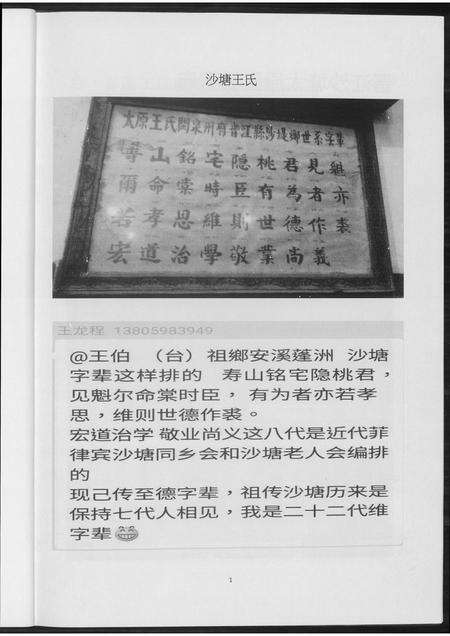 沙塘王氏
太原王氏閩泉州府晋江縣沙堤鄉世系字輩
寿山銘宅隐桃君見魁
爾命棠時臣有為者亦
若孝思維則世德作裘
宏道治學敬業尚義
王龙程 13805983949
@王伯 （台）祖鄉安溪蓬洲 沙塘
字辈这样排的 寿山铭宅隐桃君，
见魁尔命棠时臣， 有为者亦若孝
思，维则世德作裘。
宏道治学 敬业尚义这八代是近代菲
律宾沙塘同乡会和沙塘老人会编排
的
现己传至德字辈，祖传沙塘历来是
保持七代人相见，我是二十二代维
字辈😂
1